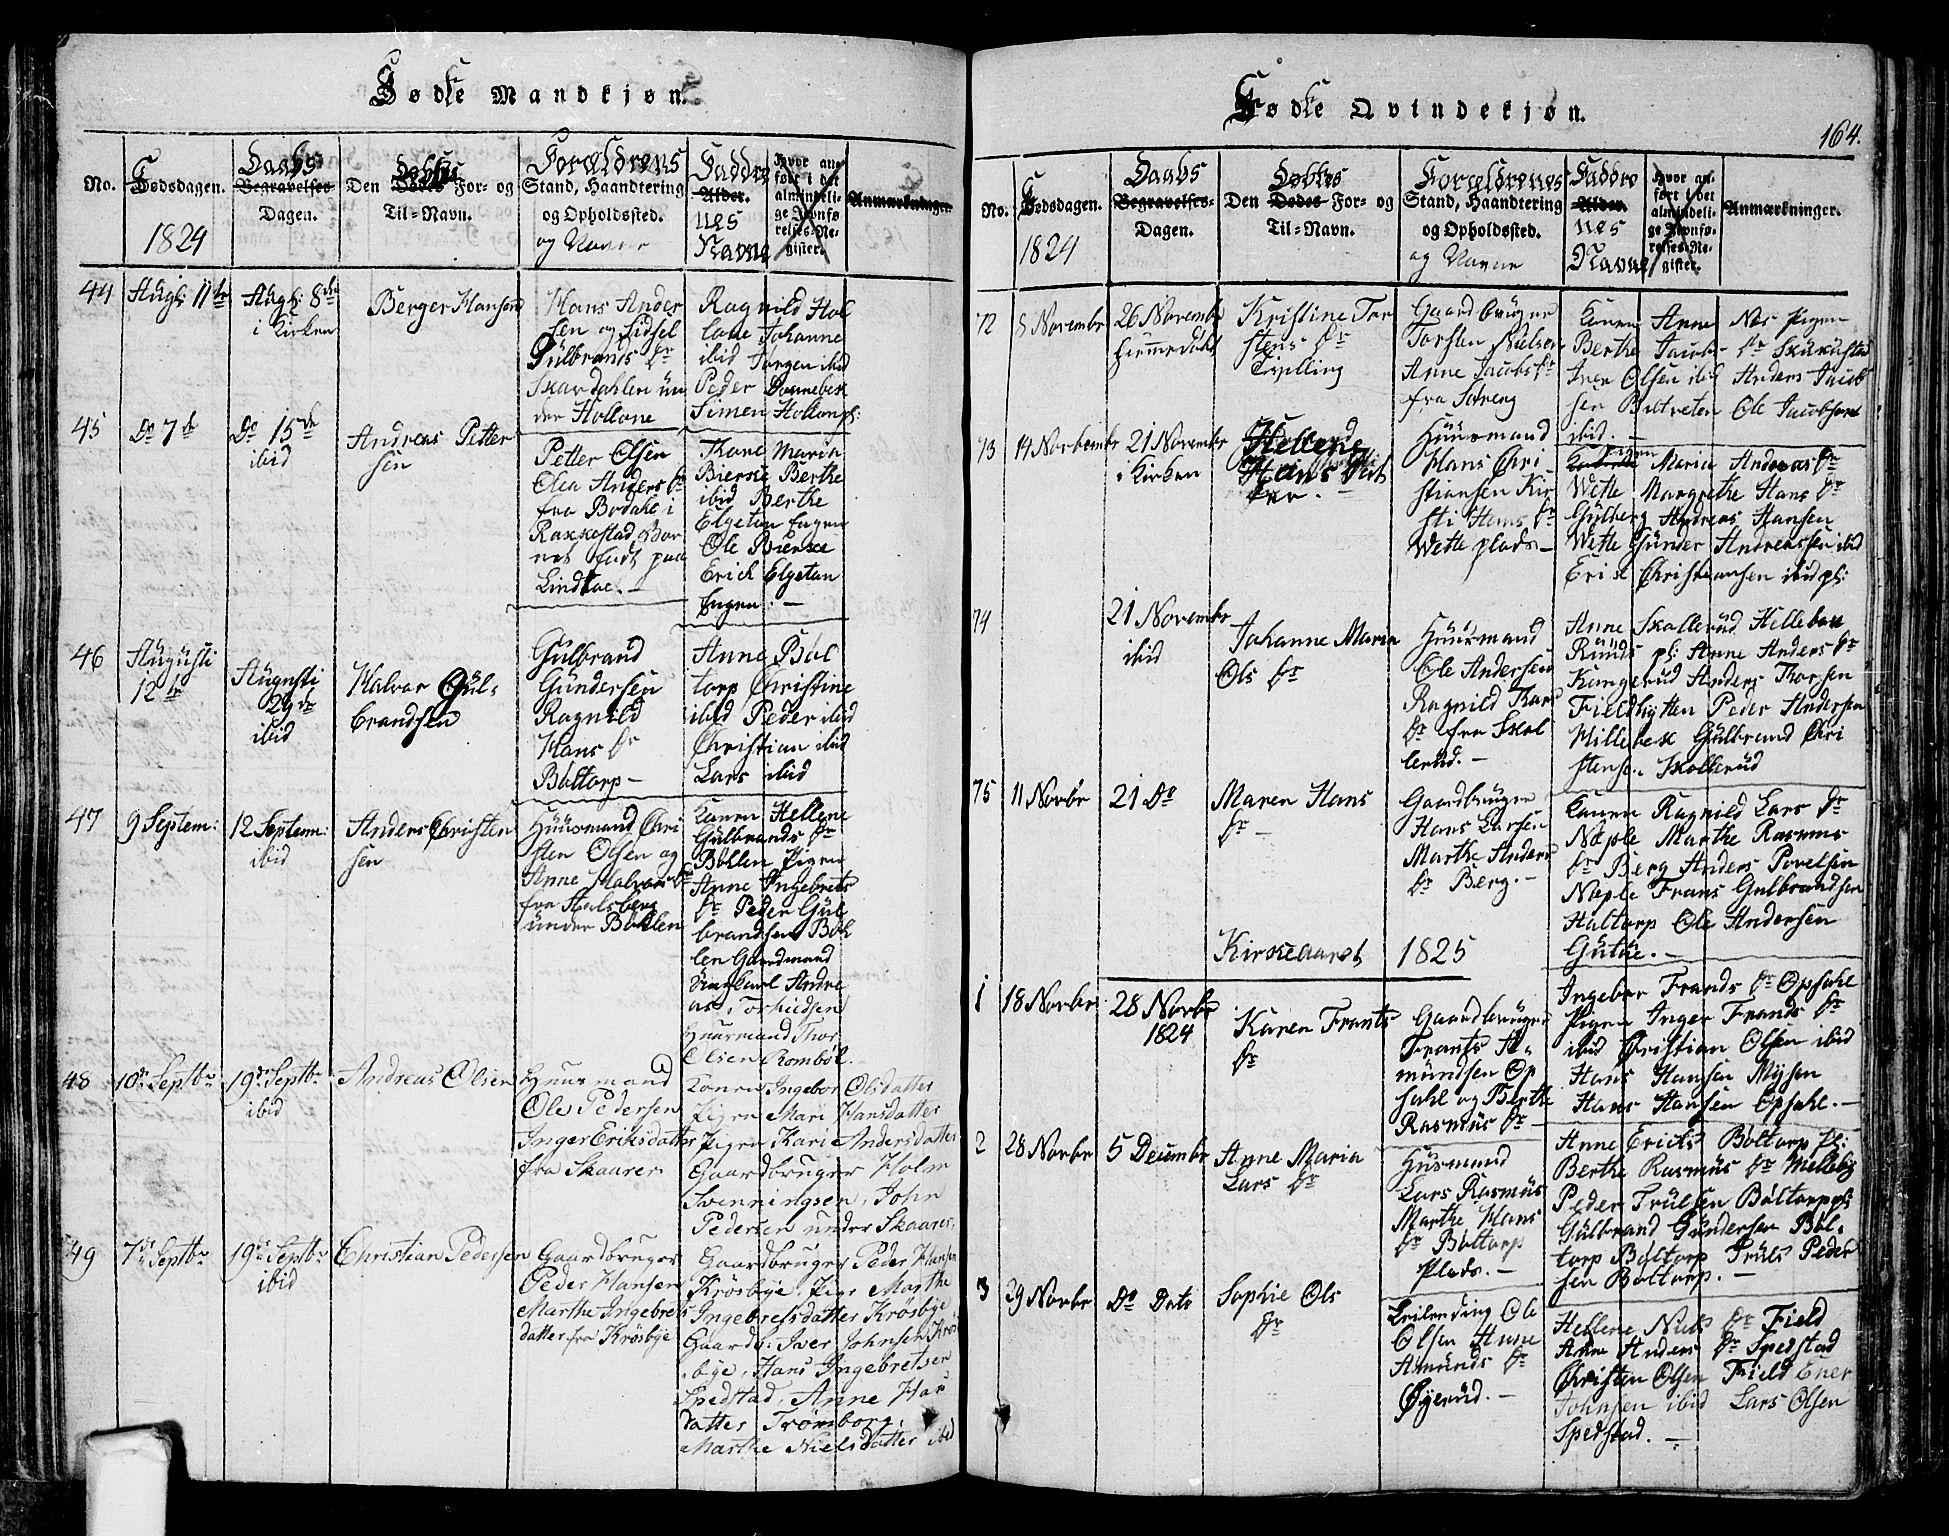 Fødte Mandkjøn.
No.
Fødsdagen.
1824
Daabs
Begravelses-
Dagen.
Døbtes
Den Dødes For- og
Til-Navn.
Forældrenes
Stand, Haandtering
og Opholdssted.
og Navne
Faddre
Alder.
nes
Navne
Hvor an-
ført i det
almindeli-
ge Jevnfø-
relses-Re-
gister.
Anmærkninger.
44
Augs: 11te
Augs: 8de
i Kirken
Berger Hansen
Hans Ander
sen og Sidsel
Gulbrands Dr
Skardahlen un
der Hollone
Ragnild Hol
lone Johanne
ibid Jørgen ibid
Peder Donnebek
Simen Hollonpl:
45
Do 7de
Do 15de
ibid
Andreas Petter
sen
Petter Olsen
Olea Anders Dr
fra Bodahl i
Rakkestad Bar
net født paa
Lindtoe. -
Kone Maria
Bierke Berthe
ibid Berthe
Elgetun Engen
Ole Bierke
Erich Elgetun
Engen. -
46
Augusti
12te
Augusti
29de
ibid
Halvor Gul-
brandsen
Gulbrand
Gundersen
Ragnild
Hans Dr
Boltorp -
Anne Bol
torp Christine
ibid Peder ibid
Christian ibid
Lars ibid
47
9 Septem:
12 Septem:
ibid
Anders Christen
sen
Huusmand Chri
sten Olsen og
Anne Halvors Dr
fra Aalsberg
under Bøhlen
Konen Hellene
Gulbrands Dr
Bøhlen Pigen
Anne Ingebrets
Dr Peder Gul
brandsen Bøh
len Gaardmand
Ungkarl Andre
as Torkildsen
Huusmand Thor
Olsen Rombøl.
48
10de Septbr
19de Septbr
ibid
Andreas Olsen
Huusmand
Ole Pedersen
Inger Eriksdatter
fra Skaarer
Konen Ingebor Olsdatter
Pigen Mari Hansdatter
Pigen Kari Andersdatter
Gaardbruger Holm
Svenningsen, John
Pedersen under Skaarer.
49
7de Septbr
19de Septbr
ibid
Christian Pedersen
Gaardbruger
Peder Hansen
Marthe Ingebrets
datter fra Krosbye
Gaardbruger Peder Hansen
Krosbye, Pige Marthe
Ingebretsdatter Krosbye
Gaardb: Iver Johnsen Kros
bye, Hans Ingebretsen
Spedstad, Anne Han
datter Trømborg,
Marthe Nielsdatter ibid
Fødte Qvindekjøn.
164.
No.
Fødsdagen.
1824
Daabs
Begravelses-
Dagen.
Døbtes
Den Dødes For- og
Til-Navn.
Forældrenes
Stand, Haandtering
og Opholdssted.
og Navne
Faddre
Alder.
nes
Navne
Hvor an-
ført i det
almindeli-
ge Jevnfø-
relses-Re-
gister.
Anmærkninger.
72
5 Novembr
26 Novembr
hiemmedøbt
Kristine Tor
stens Dr
Tvilling
Gaardbruger
Torsten Nielsen
Anne Jacobs Dr
fra Sereng
Konen Anne Næs Pigen
Berthe Jacobs Dr Skukustad
Iver Olsen ibid Anders Jacob
sen Butreten Ole Jacobsen
ibid. -
73
14 Novbembr
21 Novembr
i Kirken
Hellene
Hans Dat
ter. -
Huusmand
Hans Chri
stiansen Kir
sti Hans Dr
Wette plads -
Pigen Maria Andreas Dr
Wette Margrethe Hans Dr
Gulberg Andreas Hansen
Wette Gunder Andreassen ibid
Erik Christiansen ibid pl:
74
21 Novembr
ibid
Johanne Maria
Ols Dr
Huusmand
Ole Andersen
Ragnild Thor
Dr fra Skol
lerud. -
Anne Skollerud Helleben
Runds pl: Anne Anders Dr
Kangerud Anders Thorsen
Fieldhytten Peder Andersen
Millebek Gulbrand Chri
stens. Skollerud
75
11 Novbr
21 Do
Maren Hans
Dr -
Gaardbruger
Hans Larsen
Marthe Anders
Dr Berg. -
Konen Ragnild Lars Dr
Næple Marthe Rasmus
Dr Berg Anders Povelsen
Næple Frans Gulbrandsen
Haltorp Ole Andersen
Guthe. -
Kirkeaaret 1825
1
18 Novbr
28 Novbr
1824
Karen Frants
Dr
Gaardbruger
Frants A-
mundsen Op
sahl og Berthe
Rasmus Dr -
Ingebor Frands Dr Opsahl
Pigen Inger Frands Dr
ibid Christian Olsen ibid
Hans Hansen Mysen
Hans Hansen Opsahl. -
2
28 Novbr
5 Decembr
Anne Maria
Lars Dr
Husmand
Lars Rasmus
Marthe Hans
Dr Boltorp
Plads. -
Anne Erichs Boltorp pl:
Berthe Rasmus Dr Melleby
Peder Trulsen Boltorppl:
Gulbrand Gundersen Bol-
torp Boltorp Truls Peder
sen Boltorp. -
3
29 Novbr
Do Dato
Sophie Ols
Dr
Leilending Ole
Olsen Anne
Amunds Dr
Øyerud. -
Hellene Niels Dr Field
Anne Anders Dr Spedstad
Christen Olsen Field Ener
Johnsen ibid Lars Olsen
Spedstad. -